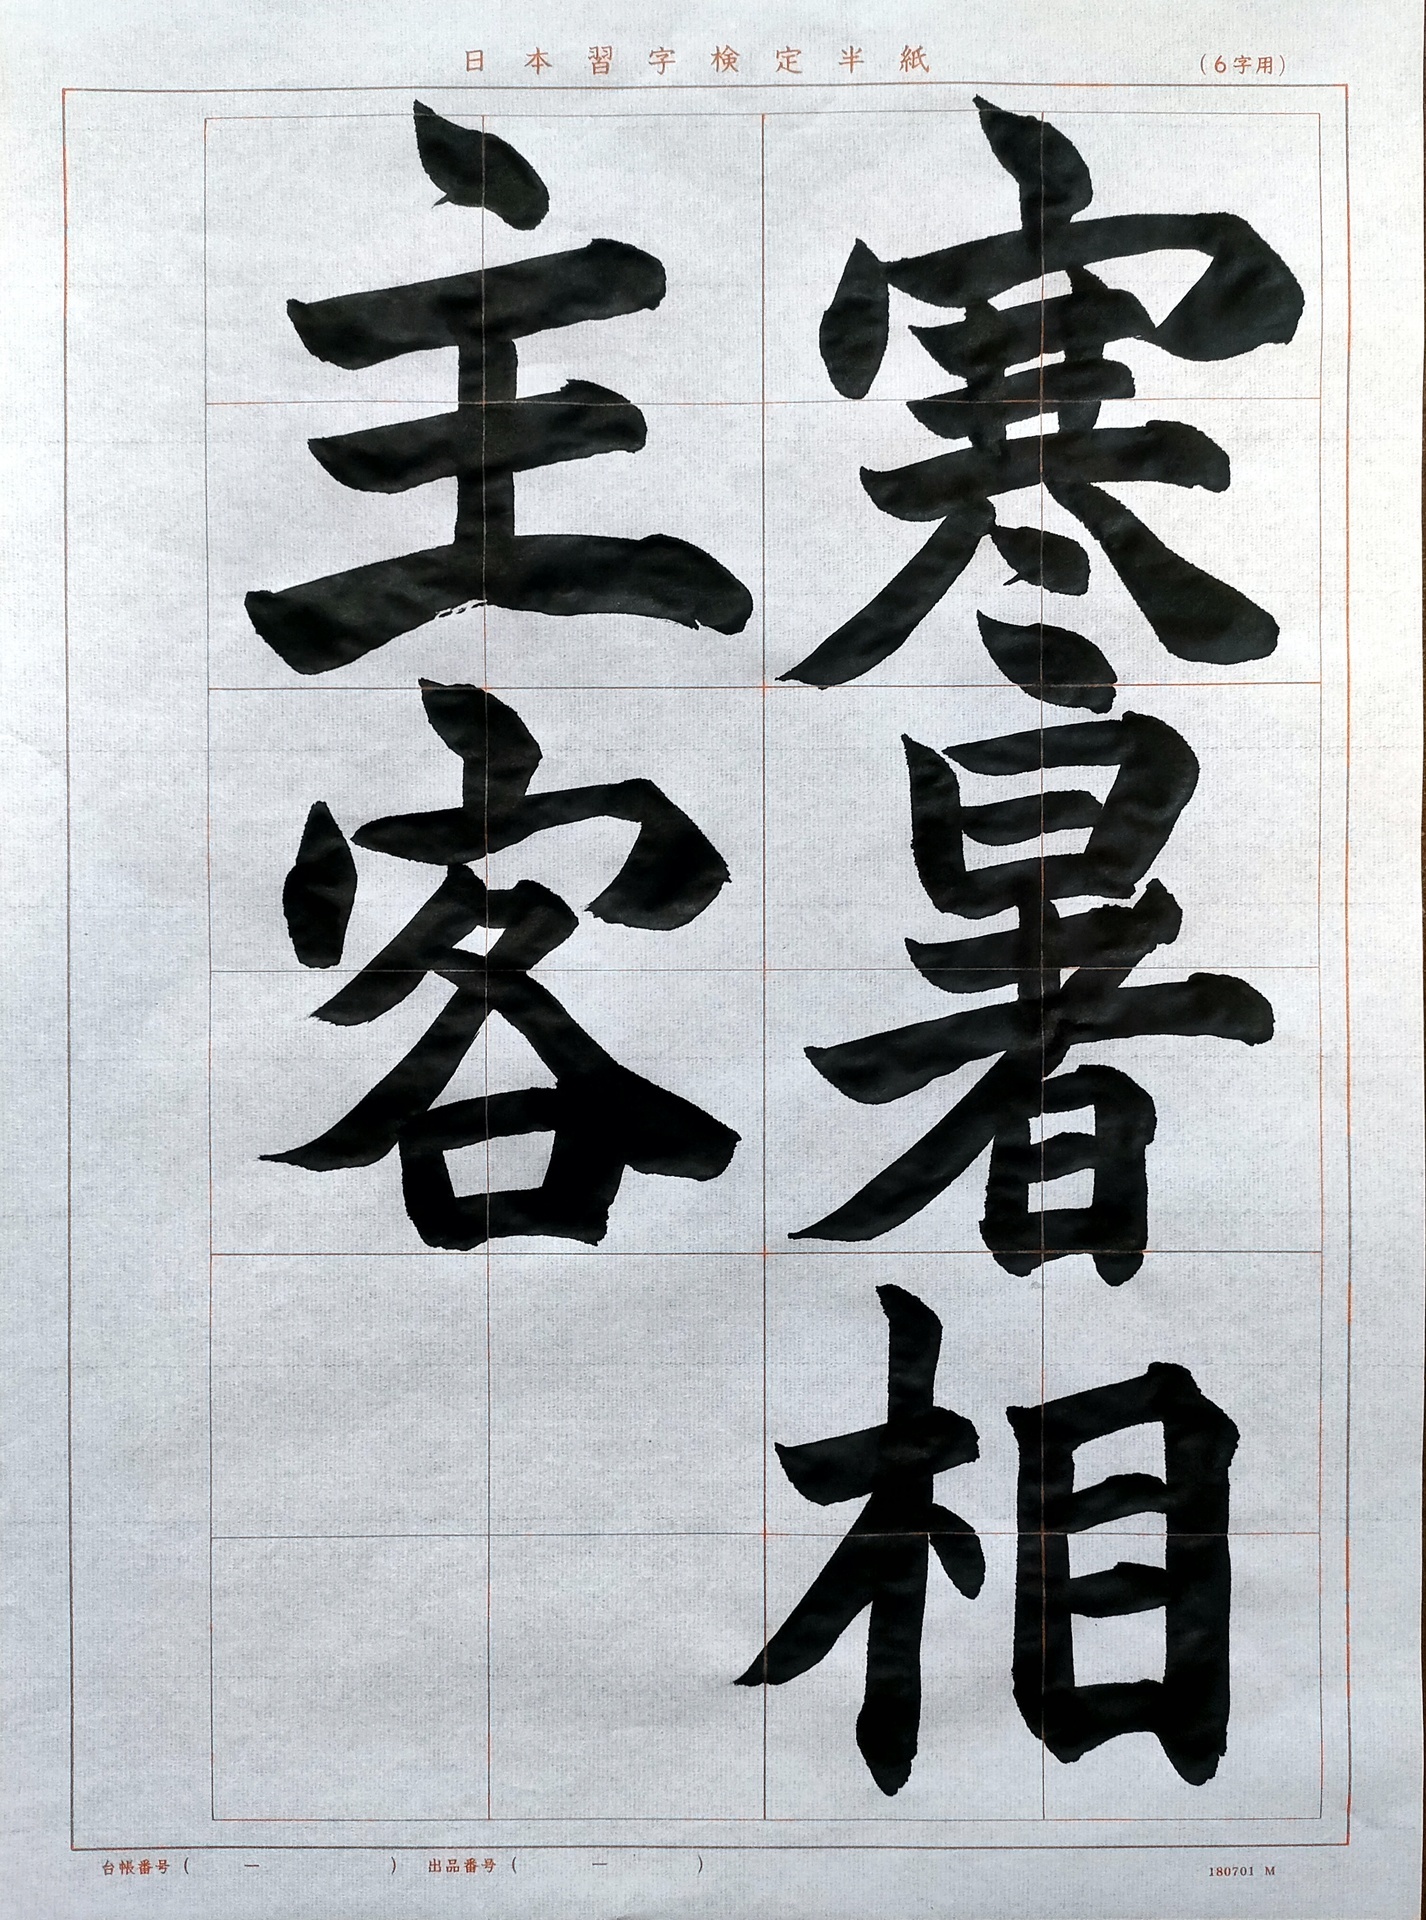 日本習字検定半紙
(6字用)
寒暑相
主客
台帳番号 ( － ) 出品番号 ( － )
180701 M